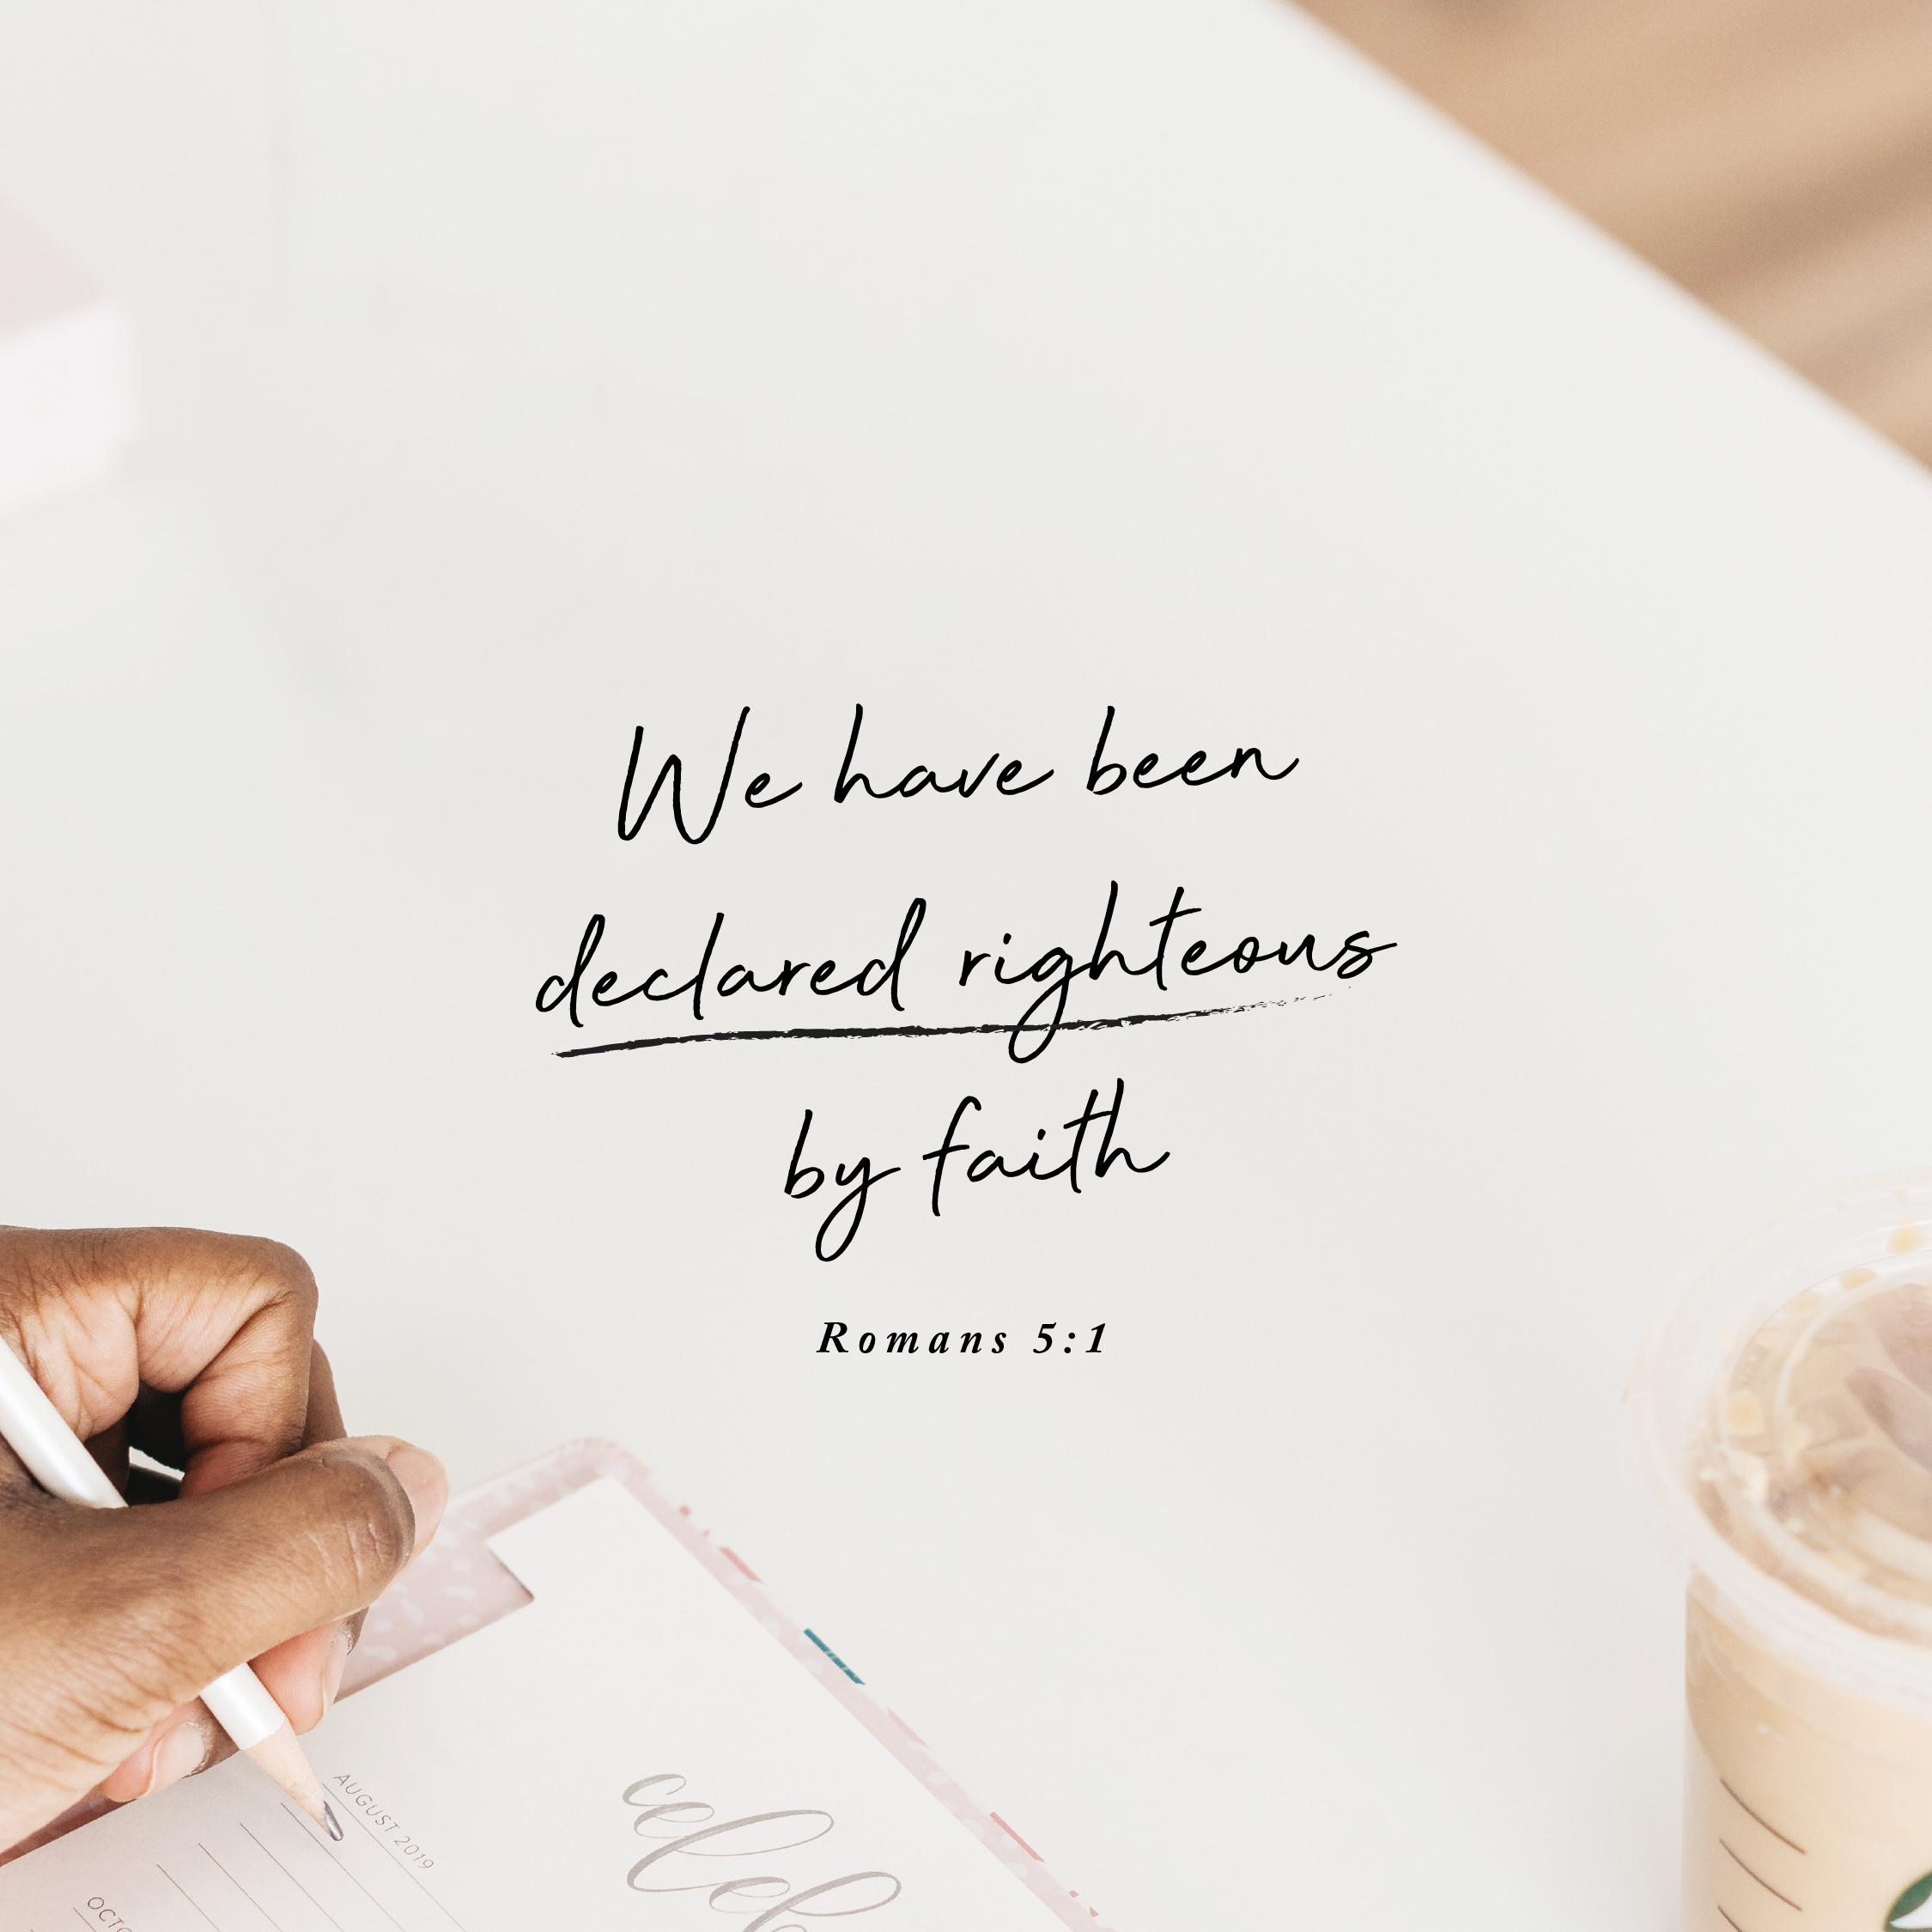 We have been
declared righteous
by faith
Romans 5:1
AUGUST 2019